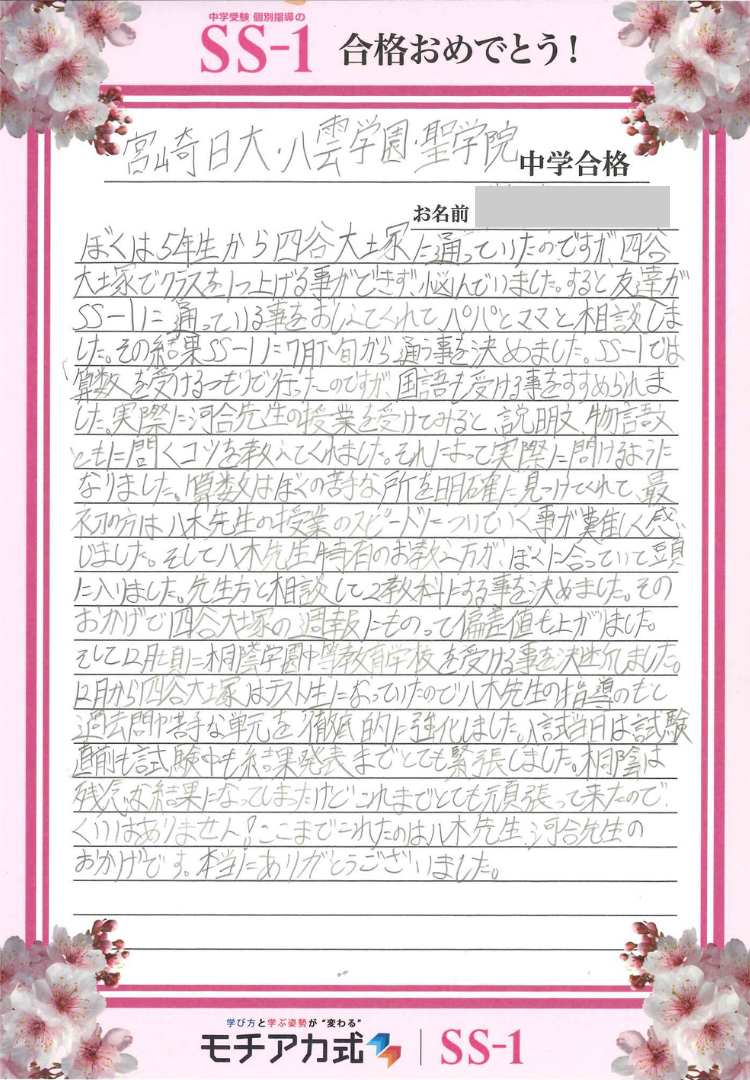 中学受験 個別指導の
SS-1 合格おめでとう!
宮崎日大・八雲学園・聖学院 中学合格
お名前
ぼくは5年生から四谷大塚に通っていたのですが、四谷
大塚でクラスを1つ上げる事ができず、悩んでいました。すると友達が
SS-1に通っている事をおしえてくれてパパとママと相談しま
した。その結果SS-1に7月下旬から通う事を決めました。SS-1では
算数を受けるつもりで行ったのですが、国語も受ける事をすすめられま
した。実際に河合先生の授業を受けてみると、説明文、物語文
ともに解くコツを教えてくれました。それによって実際に解けるように
なりました。算数はぼくの苦手な所を明確に見つけてくれて、最
初の方は八木先生の授業のスピードについていく事が難しく感
じました。そして八木先生特有のお教え方が、ぼくに合っていて頭
に入りました。先生方と相談して2教科にする事を決めました。その
おかげで四谷大塚の週報にものって偏差値も上がりました。
そして12月頃に桐蔭学園中等教育学校を受ける事を決断しました。
12月から四谷大塚はテスト生になっていたので八木先生の指導のもと
過去問や苦手な単元を徹底的に強化しました。入試当日は試験
直前も試験中も結果発表までとても緊張しました。桐蔭は
残念な結果になってしまったけどこれまでとても頑張って来たので、
くいはありません!ここまでこれたのは八木先生、河合先生の
おかげです。本当にありがとうございました。
学び方と学ぶ姿勢が"変わる"
モチアカ式 SS-1